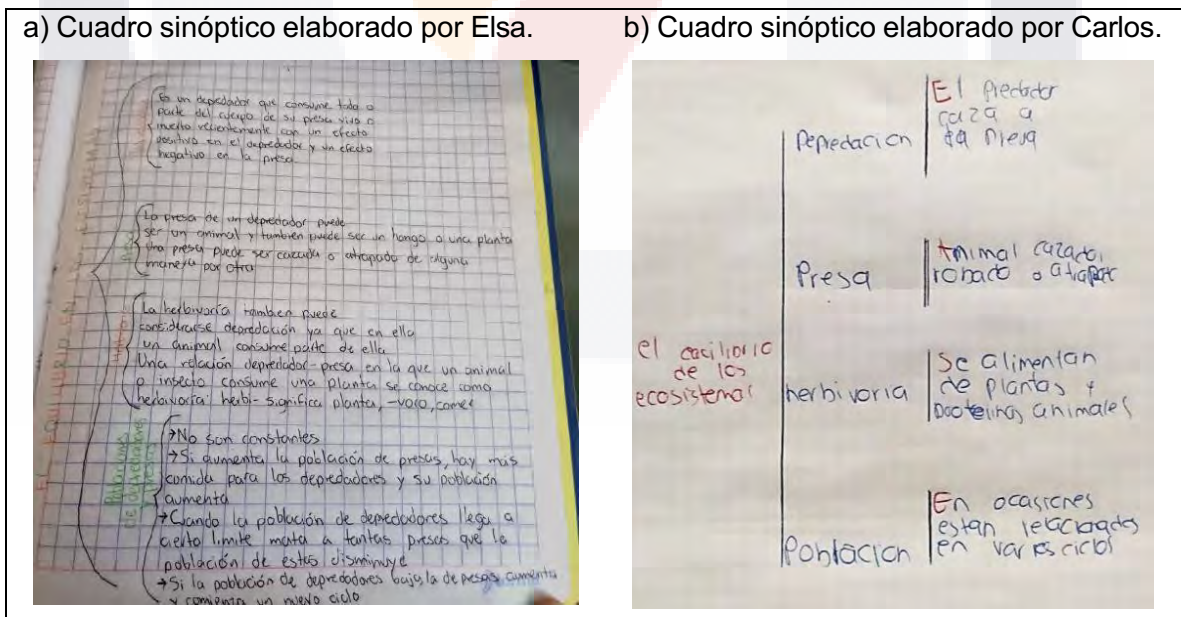 a) Cuadro sinóptico elaborado por Elsa.
Es un depredador que consume todo o
parte del cuerpo de su presa vivo o
muerto recientemente con un efecto
positivo en el depredador y un efecto
negativo en la presa
La presa de un depredador puede
ser un animal y tambien puede ser un hongo o una planta
Una presa puede ser cazada o atrapada de alguna
manera por otro
La herbivoría tambien puede
considerarse depredación ya que en ella
un animal consume parte de ella
Una relación depredador-presa en la que un animal
o insecto consume una planta se conoce como
herbivoría: herbi- significa planta, -voro, comer
EL EQUILIBRIO EN
Poblaciones
de depredadores
y presas
→No son constantes
→Si aumenta la población de presas, hay más
comida para los depredadores y su población
aumenta
→Cuando la población de depredadores llega a
cierto limite mata a tantas presas que la
población de estas disminuye
→Si la población de depredadores baja, la de presas aumenta
y comienza un nuevo ciclo
b) Cuadro sinóptico elaborado por Carlos.
el de los
ecosistemas
Depredacion
El
caza a
Presa
Animal cazado,
robado o
herbivoria
Se alimentan
de plantas y
animales
Poblacion
En ocasiones
estan relacionados
en varios ciclos